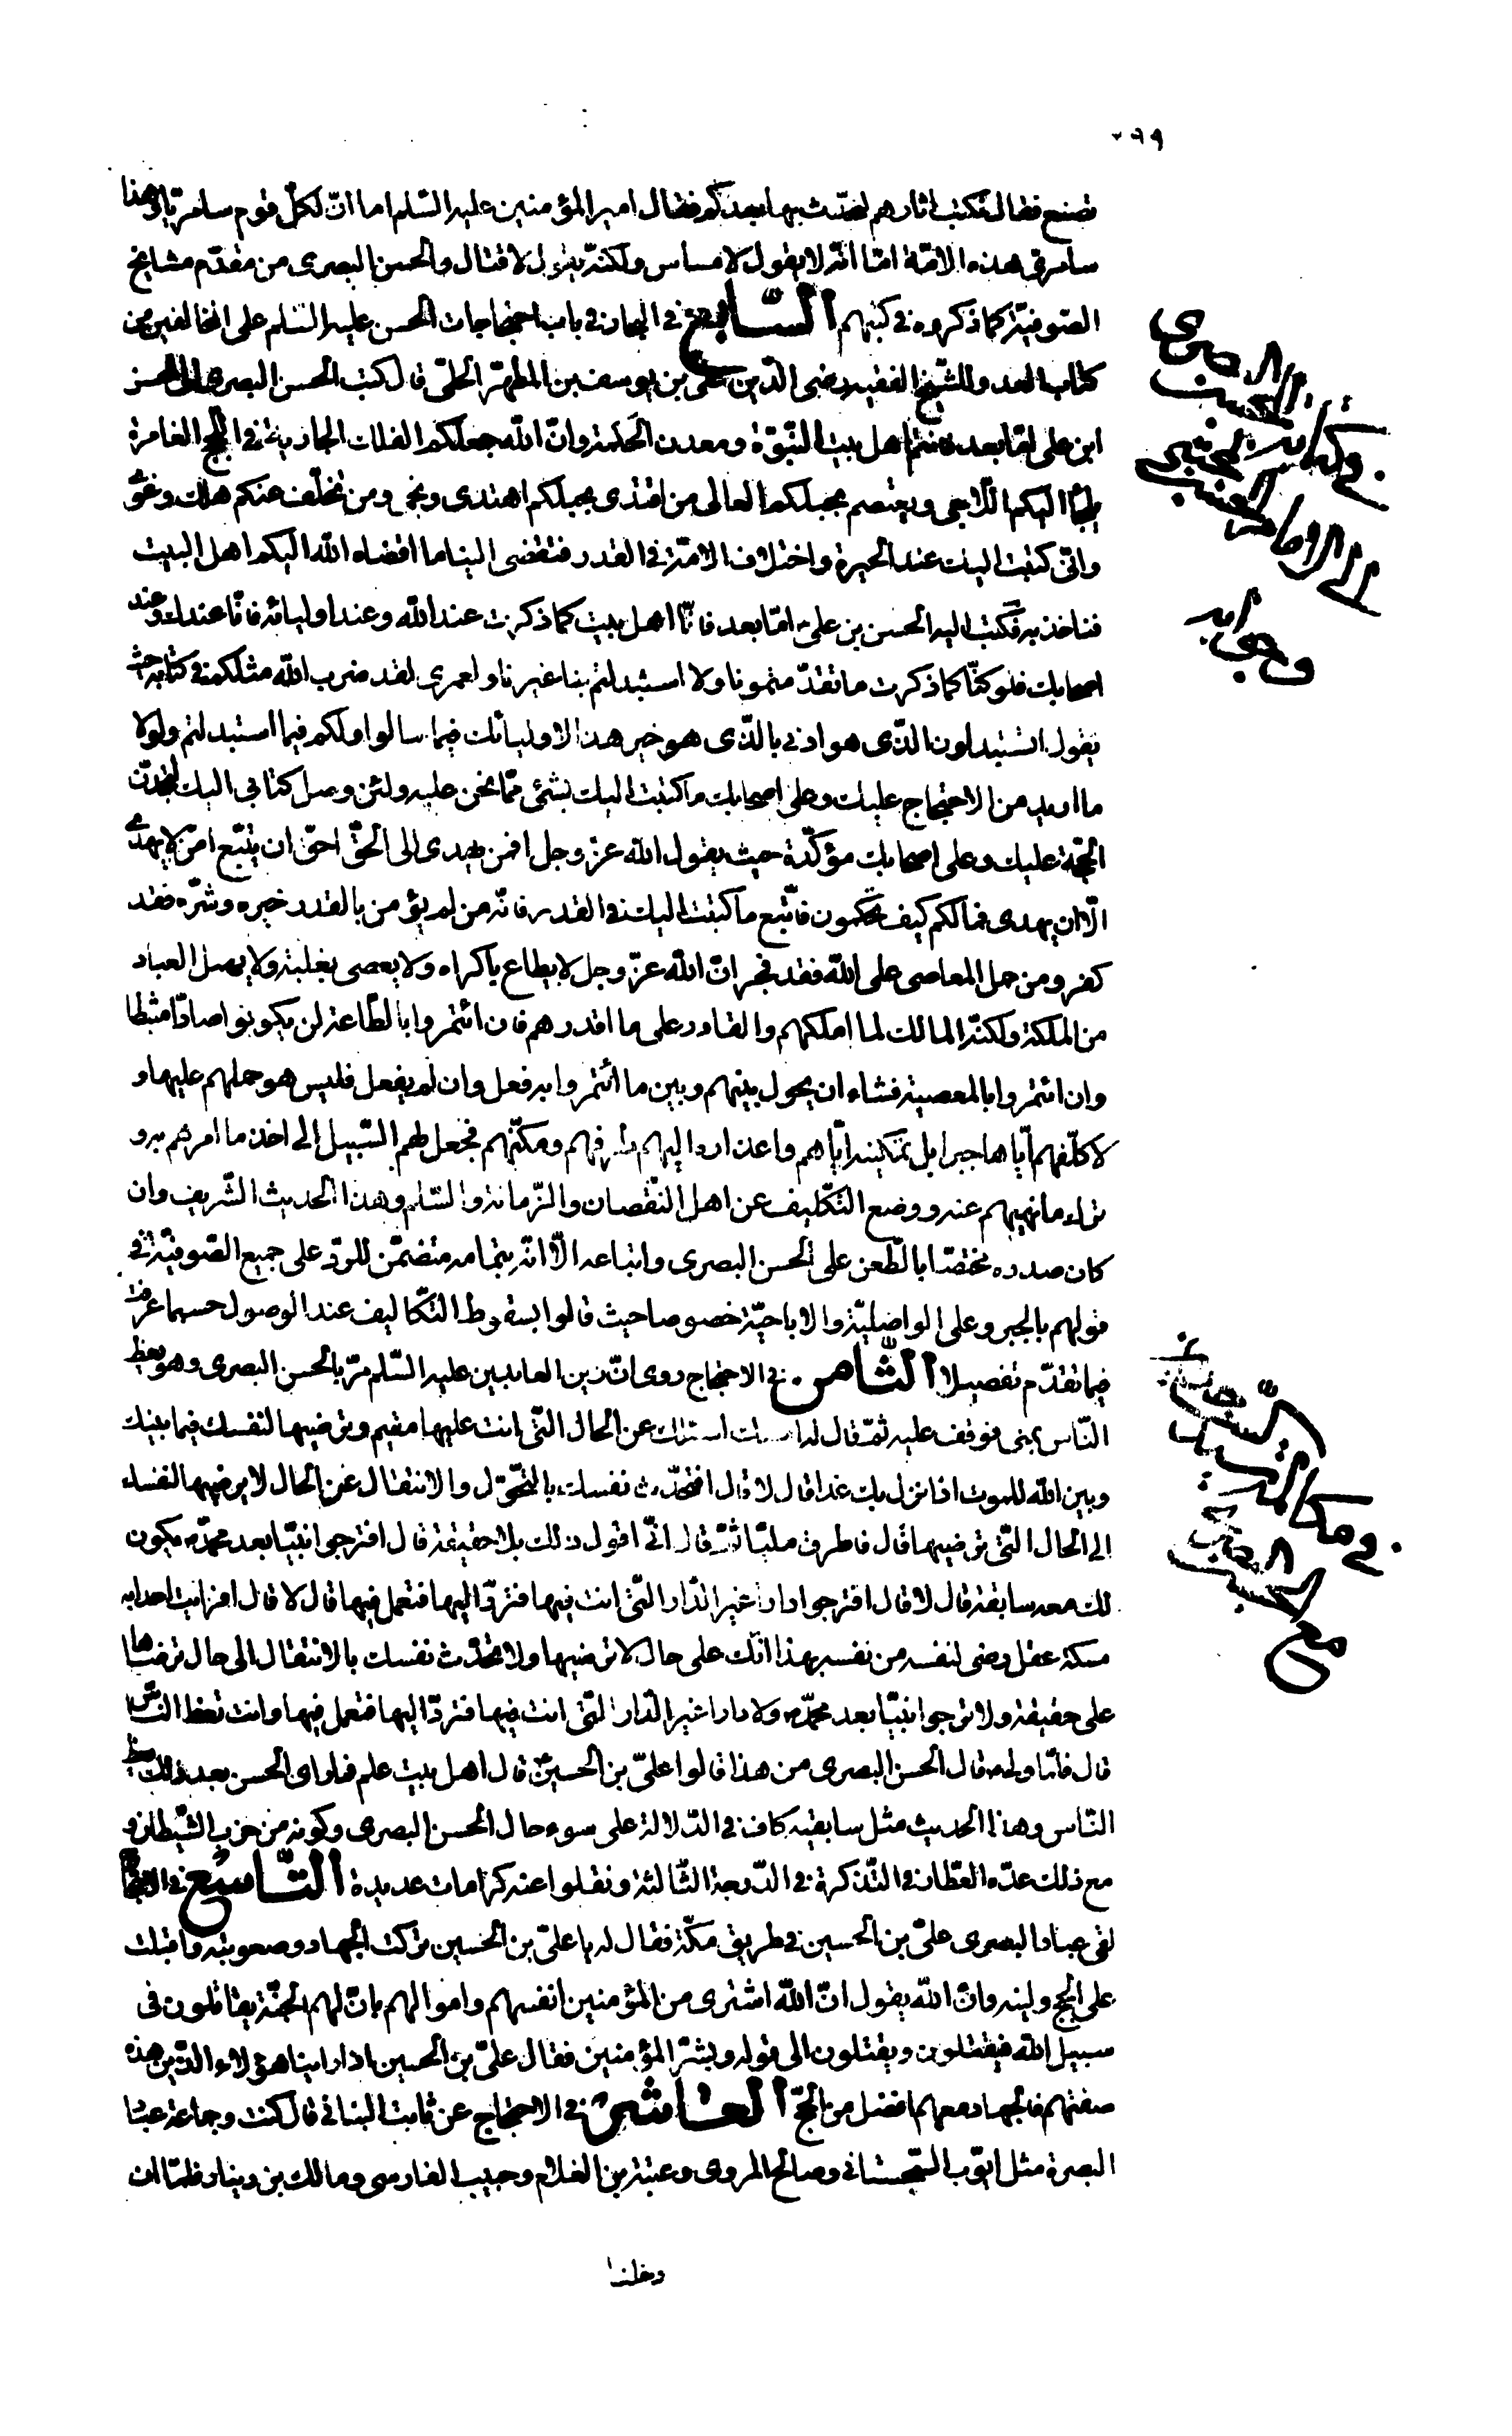 ٢٦٩
تصنع فقال نكتب اثارهم لنحدّث بها بعدكم فقال امير المؤمنين عليه السّلم اما انّ لكلّ قوم سامريّا وهذا
سامرى هذه الامّة امّا انّه لا يقول لا مساس ولكنّه يقول لا قتال والحسن البصرى من مقدّم مشايخ
الصّوفيّة كما ذكروه فى كتبهم السّابع فى البحار فى باب احتجاجات الحسن عليه السّلم على المخالفين من
كتاب العدد للشّيخ الفقيه رضى الدّين علىّ بن يوسف بن المطهّر الحلّى قال كتب الحسن البصرى الى الحسن
ابن على امّا بعد فانتم اهل بيت النّبوّة ومعدن الحكمة وانّ اللّه جعلكم الفلك الجارية فى اللجج الغامرة
يلجأ اليكم اللّاجى ويعتصم بحبلكم العالى من اقتدى بحبلكم اهتدى ونجى ومن تخلّف عنكم هلك وغوى
وانّى كتبت اليك عند الحيرة واختلاف الامّة فى القدر فتفضى الينا ما افضاه اللّه اليكم اهل البيت
فناخذ به فكتب اليه الحسن بن علىّ امّا بعد فانّا اهل بيت كما ذكرت عند اللّه وعند اوليائه فامّا عندك وعند
اصحابك فلو كنّا كما ذكرت ما تقدّمتمونا ولا استبدلتم بنا غيرنا ولعمرى لقد ضرب اللّه مثلكم فى كتابه حيث
يقول اتستبدلون الّذى هو ادنى بالّذى هو خير هذا لاوليائك فيما سالوا ولكم فيما استبدلتم ولولا
ما اريد من الاحتجاج عليك وعلى اصحابك ما كتبت اليك بشئ ممّا نحن عليه ولئن وصل كتابى اليك لتجدنّ
الحجّة عليك وعلى اصحابك مؤكّدة حيث يقول اللّه عزّ وجل افمن يهدى الى الحقّ احقّ ان يتّبع امّن لا يهدّى
الّا ان يهدى فما لكم كيف تحكمون فاتّبع ما كتبت اليك فى القدر فانّه من لم يؤمن بالقدر خيره وشرّه فقد
كفر ومن حمل المعاصى على اللّه فقد فجر انّ اللّه عزّ وجل لا يطاع باكراه ولا يعصى بغلبة ولا يهمل العباد
من الملكة ولكنّه المالك لما املكهم والقادر على ما اقدرهم فان ائتمروا بالطّاعة لن يكونوا صادّا مثبطا
وان ائتمروا بالمعصية فشاء ان يحول بينهم وبين ما ائتمروا به فعل وان لم يفعل فليس هو حملهم عليها و
لا كلّفهم ايّاها جبرا بل تمكينه ايّاهم واعذاره اليهم وتمكّنهم فجعل لهم السّبيل الى اخذ ما امرهم به و
ترك ما نهيهم عنه ووضع التّكليف عن اهل النّقصان والزّمانة والسّلم وهذا الحديث الشّريف وان
كان صدره مختصّا بالطّعن على الحسن البصرى واتباعه الّا انّه بتمامه متضمّن للرّد على جميع الصّوفيّة فى
قولهم بالجبر وعلى الواصليّة والاباحيّة خصوصا حيث قالوا بسقوط التّكاليف عند الوصول حسبما عرفت
فيما تقدّم تفصيلا الثّامن فى الاحتجاج روى انّ زين العابدين عليه السّلم مرّ بالحسن البصرى وهو يعظ
النّاس بمنى فوقف عليه ثمّ قال له اسئلك عن الحال الّتى انت عليها مقيم وترضيها لنفسك فيما بينك
وبين اللّه للموت اذا نزل بك غدا قال لا قال افتحدّث نفسك بالتّحوّل والانتقال عن الحال لا يرضيها لنفسك
الى الحال الّتى ترضيها قال فاطرق مليّا ثمّ قال انّى اقول ذلك بلا حقيقة قال افترجوا نبيّا بعد محمّد يكون
لك معه سابقة قال لا قال افترجوا دارا غير الدّار الّتى انت فيها فتردّ اليها فتعمل فيها قال لا قال افرايت احدا به
مسكة عقل رضى لنفسه من نفسه بهذا انّك على حال لا ترضيها ولا تحدّث نفسك بالانتقال الى حال ترضاها
على حقيقة ولا ترجوا نبيّا بعد محمّد ولا دارا غير الدّار الّتى انت فيها فتردّ اليها فتعمل فيها وانت تعظ النّاس
قال فلمّا ولّى قال الحسن البصرى من هذا قالوا علىّ بن الحسين قال اهل بيت علم فما راى الحسن بعد ذلك يعظ
النّاس وهذا الحديث مثل سابقيه كاف فى الدّلالة على سوء حال الحسن البصرى وكونه من حزب الشّيطان و
مع ذلك عدّه العطّار فى التّذكرة فى الدّرجة الثّالثة ونقلوا عنه كرامات عديدة التّاسع فى الاحتجاج
لقى عباد البصرى علىّ بن الحسين فى طريق مكّة فقال له يا علىّ بن الحسين تركت الجهاد وصعوبته واقبلت
على الحج ولينه وانّ اللّه يقول انّ اللّه اشترى من المؤمنين انفسهم واموالهم بانّ لهم الجنّة يقاتلون فى
سبيل اللّه فيقتلون ويقتلون الى قوله وبشّر المؤمنين فقال علىّ بن الحسين اذا راينا هؤلاء الّذين هذه
صفتهم فالجهاد معهم افضل من الحجّ العاشر فى الاحتجاج عن ثابت البنانى قال كنت وجماعة عبّاد
البصرة مثل ايّوب السّجستانى وصالح المروى وعتبة بن الغلام وحبيب الفارسى ومالك بن دينار فلمّا ان
دخلنا
فى كتابة الحسن البصرى
الى الامام الحسن المجتبى
وجوابه
فى مكالمة السيد السجاد
مع الحسن البصرى